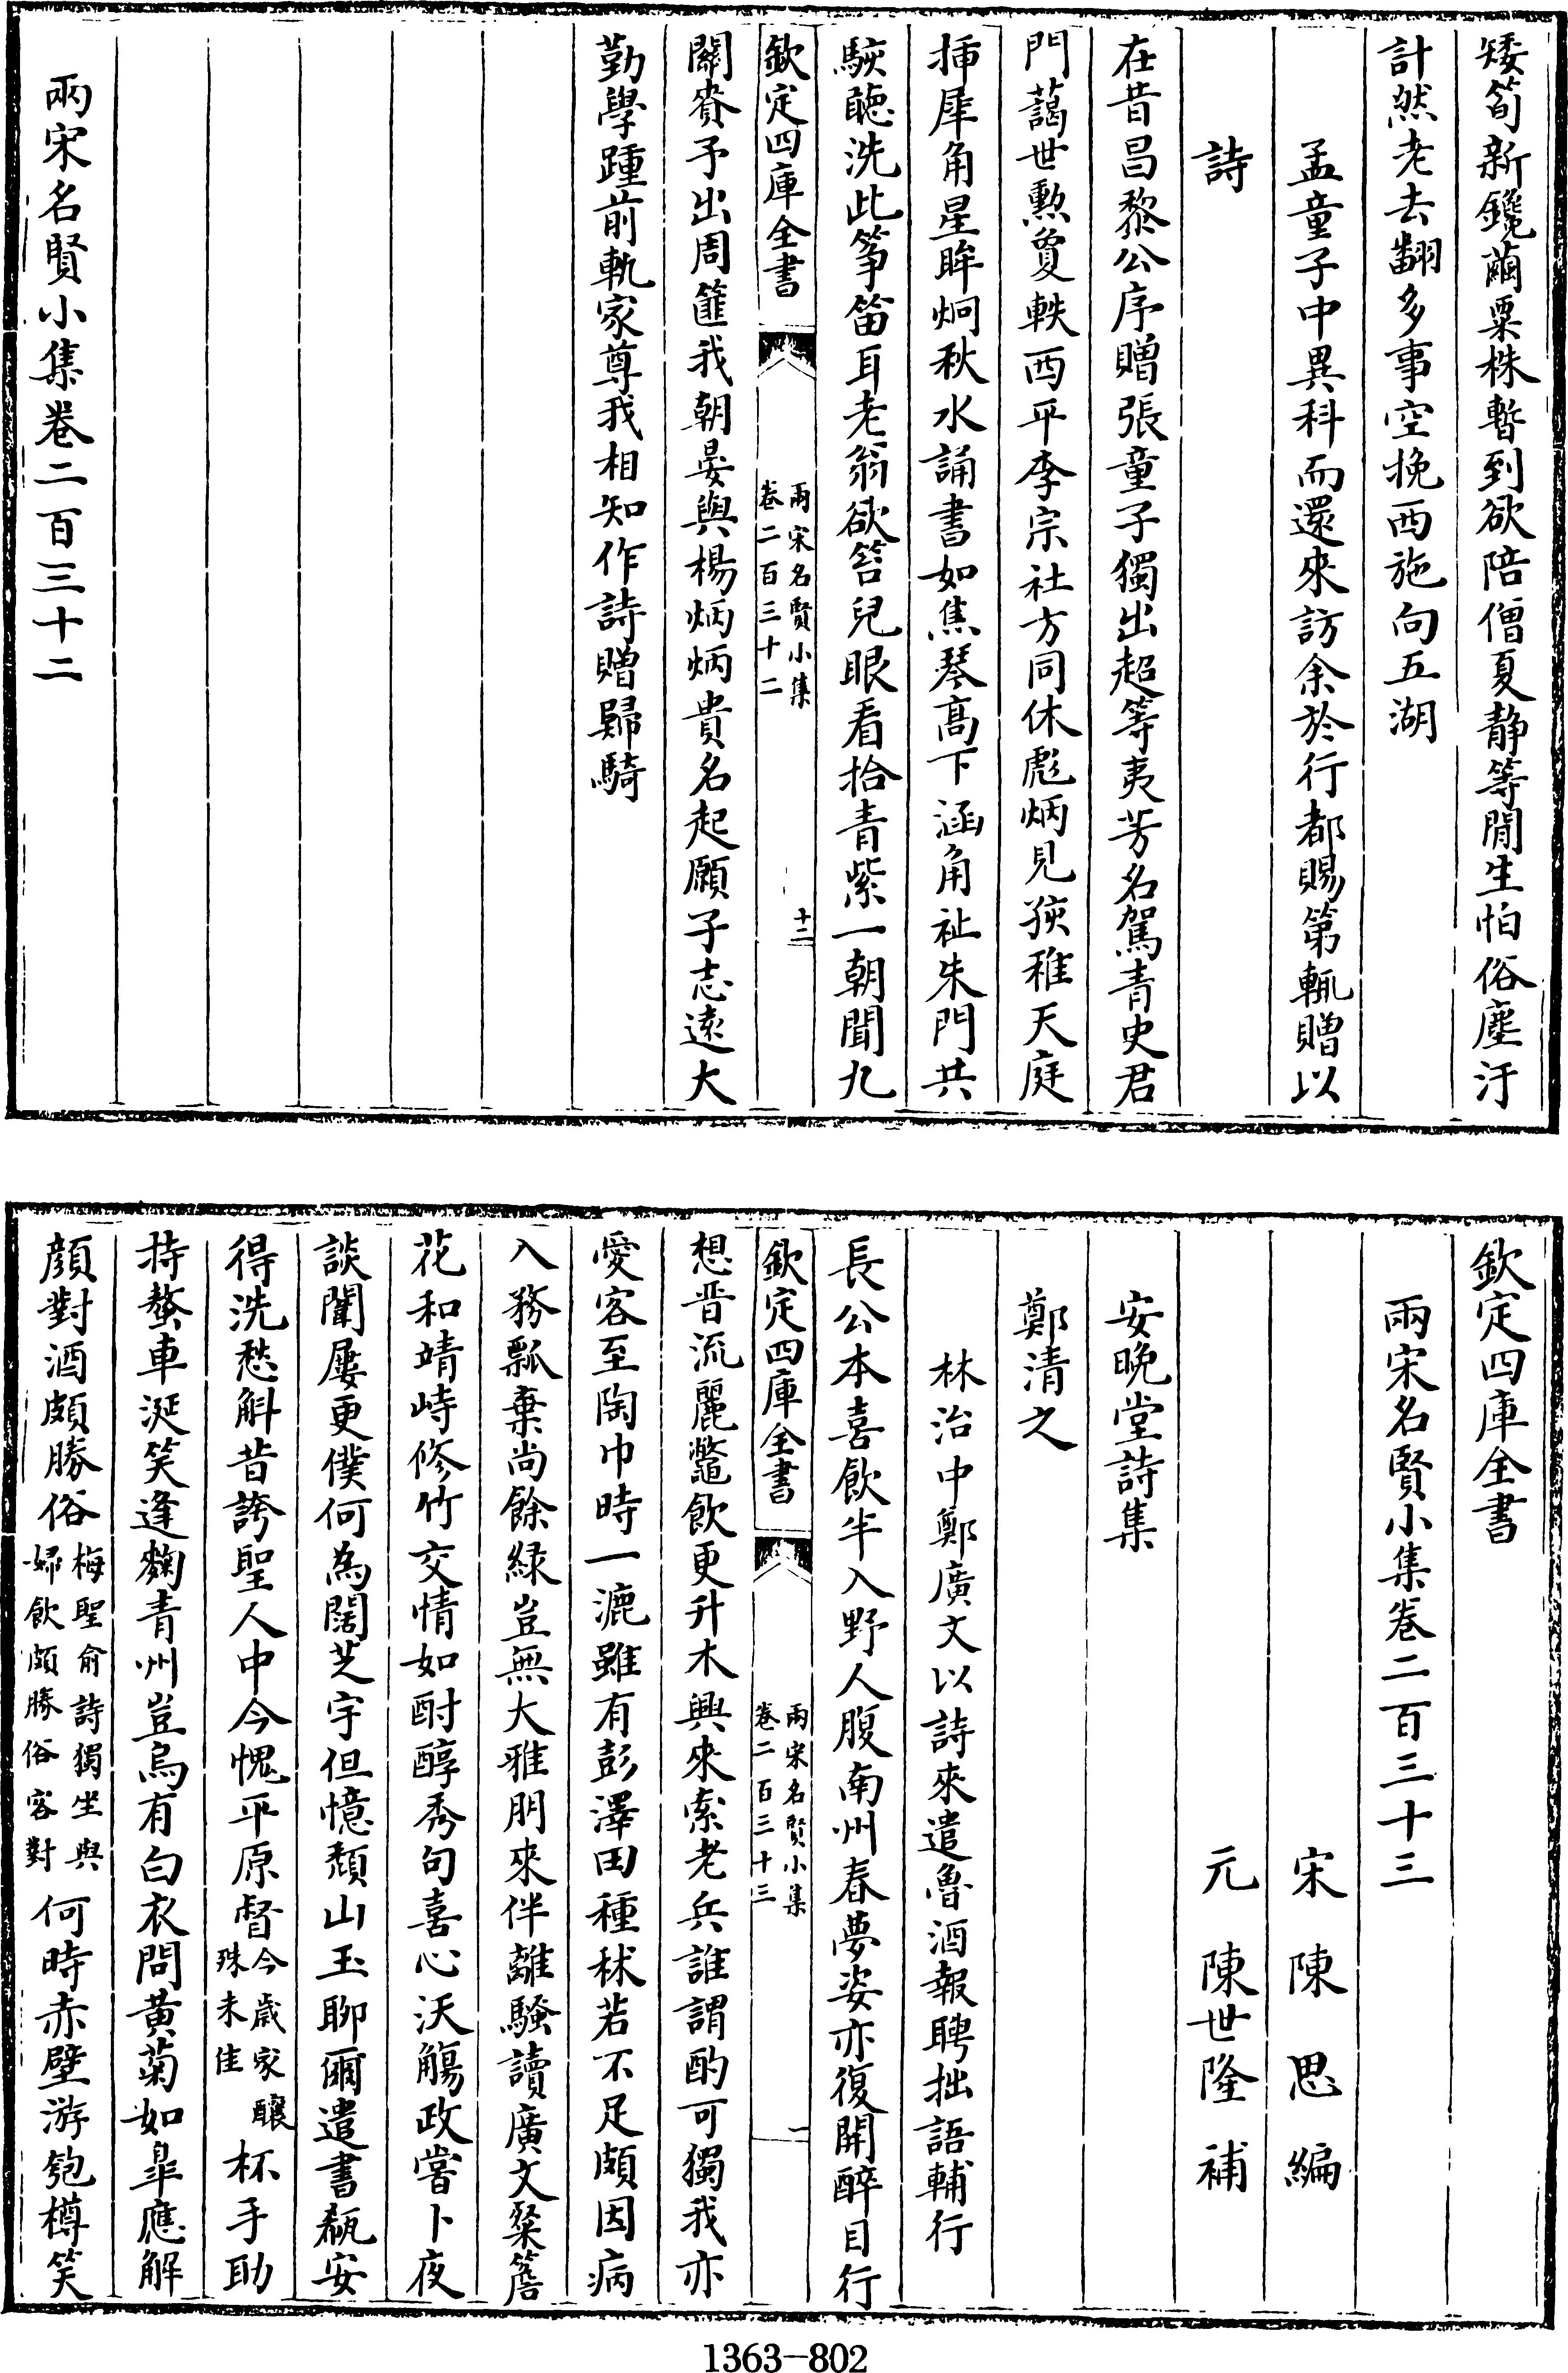 矮筍新鑱繭粟株暫到欲陪僧夏静等閒生怕俗塵汙
計然老去翻多事空挽西施向五湖
孟童子中異科而還來訪余於行都賜第輒贈以
詩
在昔昌黎公序贈張童子獨出超等夷芳名駕青史君
門藹世勲夐軼西平李宗社方同休彪炳見孩稚天庭
挿犀角星眸炯秋水誦書如焦琴髙下涵角祉朱門共
駭聴洗此筝笛耳老翁欲笞兒眼看拾青紫一朝聞九
欽定四庫全書
兩宋名賢小集
卷二百三十二
十二
關賚予出周篚我朝晏與楊炳炳貴名起願子志遠大
勤學踵前軌家尊我相知作詩贈歸騎
兩宋名賢小集卷二百三十二
欽定四庫全書
兩宋名賢小集卷二百三十三
宋 陳思 編
元 陳世隆 補
安晚堂詩集
鄭清之
林治中鄭廣文以詩來遣魯酒報聘拙語輔行
長公本喜飲半入野人腹南州春夢姿亦復開醉目行
欽定四庫全書
兩宋名賢小集
卷二百三十三
一
想晋流麗鼈飲更升木興來索老兵誰謂酌可獨我亦
愛客至陶巾時一漉雖有彭澤田種秫若不足頗因病
入務瓢棄尚餘緑豈無大雅朋來伴離騷讀廣文粲簷
花和靖峙修竹交情如酎醇秀句喜心沃觴政嘗卜夜
談闈屢更僕何為闊芝宇但憶頹山玉聊爾遣書瓻安
得洗愁斛昔誇聖人中今愧平原督今歳家釀殊未佳杯手助
持螯車涎笑逢麴青州豈烏有白衣問黄菊如臯應解
顔對酒頗勝俗梅聖俞詩獨坐與婦飲頗勝俗客對何時赤壁游匏樽笑
1363-802